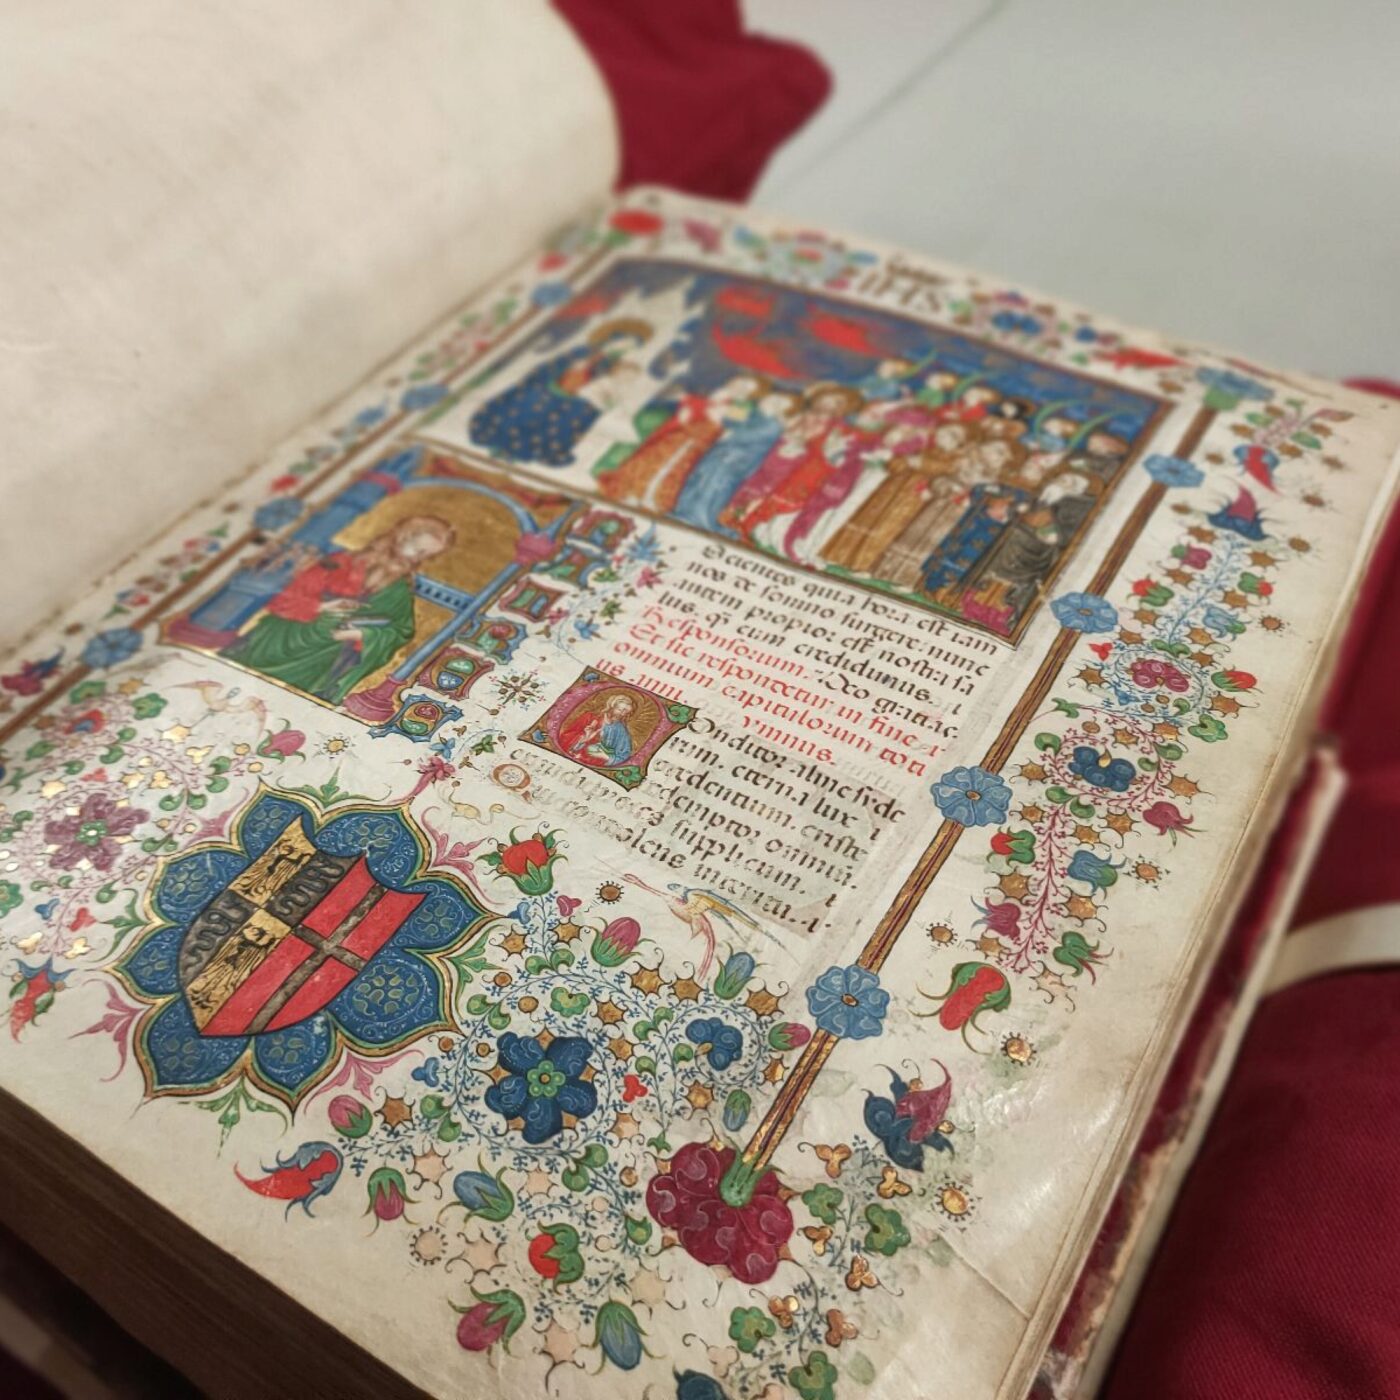 IHS
Scientes quia hora est iam
nos de somno surgere: nunc
autem propior est nostra sa
lus. qz cum credidimus.
Responsorium. Deo gratias.
Et sic respondetur in fine
omnium capitulorum toti
us anni. ymnus.
Conditor alme syde
rum. eterna lux
credentium. christe
redemptor omniu.
exaudi preces supplicum.
Qui condolens interitu.